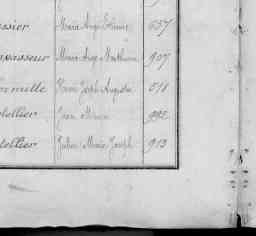 ssier Marie Ange Etienne 637
vasseur Marie Ange Mathurin 907
mille Henri Joseph Augustin 618
tellier Jean Marie 992
tellier Julien Marie Joseph 913